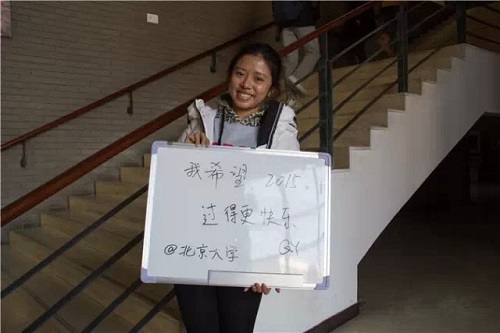 我希望 2015.
过得更快乐
@北京大学 QY